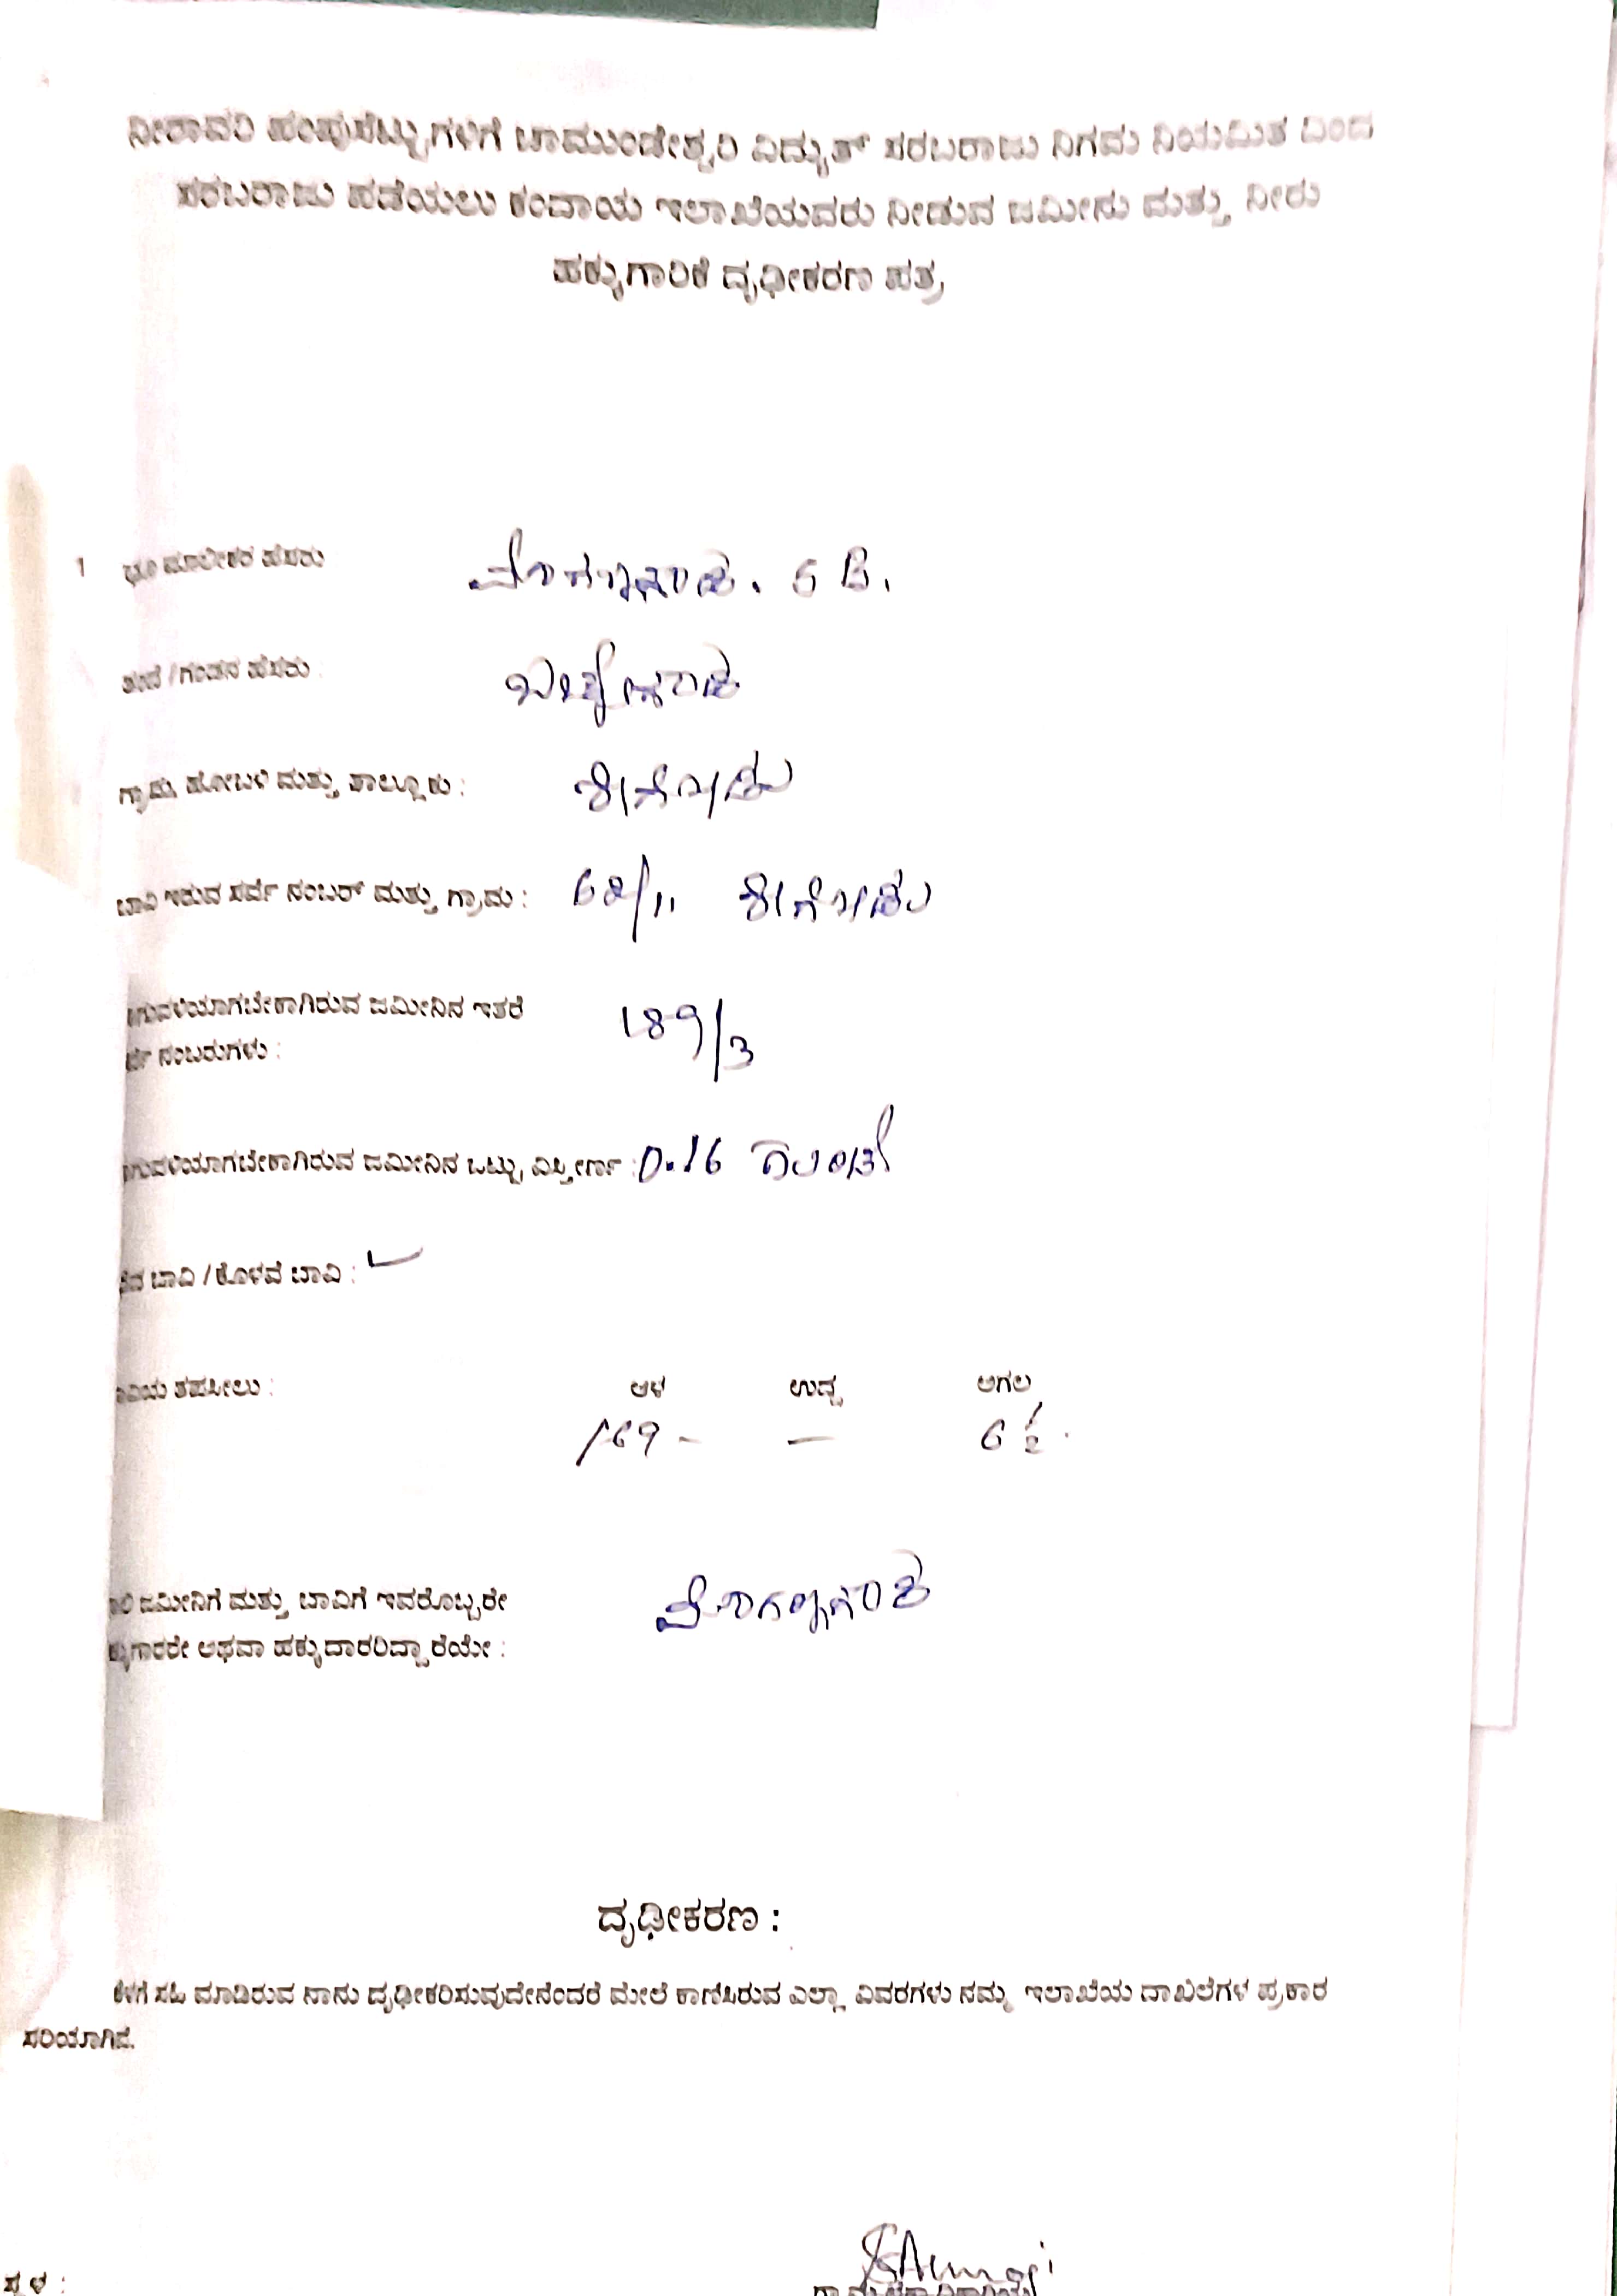 ನೀರಾವರಿ ಪಂಪುಸೆಟ್ಟುಗಳಿಗೆ ಚಾಮುಂಡೇಶ್ವರಿ ವಿದ್ಯುತ್ ಸರಬರಾಜು ನಿಗಮ ನಿಯಮಿತ ದಿಂದ
ಸರಬರಾಜು ಪಡೆಯಲು ಕಂದಾಯ ಇಲಾಖೆಯವರು ನೀಡುವ ಜಮೀನು ಮತ್ತು ನೀರು
ಹಕ್ಕುಗಾರಿಕೆ ದೃಢೀಕರಣ ಪತ್ರ
1 ಭೂ ಮಾಲೀಕರ ಹೆಸರು
ತಂದೆ / ಗಂಡನ ಹೆಸರು :
ಗ್ರಾಮ, ಹೋಬಳಿ ಮತ್ತು ತಾಲ್ಲೂಕು :
ಬಾವಿ ಇರುವ ಸರ್ವೆ ನಂಬರ್ ಮತ್ತು ಗ್ರಾಮ : 68/11
ಗುವಳಿಯಾಗಬೇಕಾಗಿರುವ ಜಮೀನಿನ ಇತರೆ 189/3
ರ್ವೆ ನಂಬರುಗಳು :
ಗುವಳಿಯಾಗಬೇಕಾಗಿರುವ ಜಮೀನಿನ ಒಟ್ಟು ವಿಸ್ತೀರ್ಣ : 0.16 ಗುಂಟೆ
ಬಾವಿ / ಕೊಳವೆ ಬಾವಿ :
ತಪಸೀಲು : ಆಳ ಉದ್ದ ಅಗಲ
169 - — 6 ½
ಜಮೀನಿಗೆ ಮತ್ತು ಬಾವಿಗೆ ಇವರೊಬ್ಬರೇ
ಕ್ಕುಗಾರರೇ ಅಥವಾ ಹಕ್ಕುದಾರರಿದ್ದಾರೆಯೇ :
ದೃಢೀಕರಣ :
ಕೆಳಗೆ ಸಹಿ ಮಾಡಿರುವ ನಾನು ದೃಢೀಕರಿಸುವುದೇನೆಂದರೆ ಮೇಲೆ ಕಾಣಿಸಿರುವ ಎಲ್ಲಾ ವಿವರಗಳು ನಮ್ಮ ಇಲಾಖೆಯ ದಾಖಲೆಗಳ ಪ್ರಕಾರ
ಸರಿಯಾಗಿವೆ.
ಸ್ಥಳ :